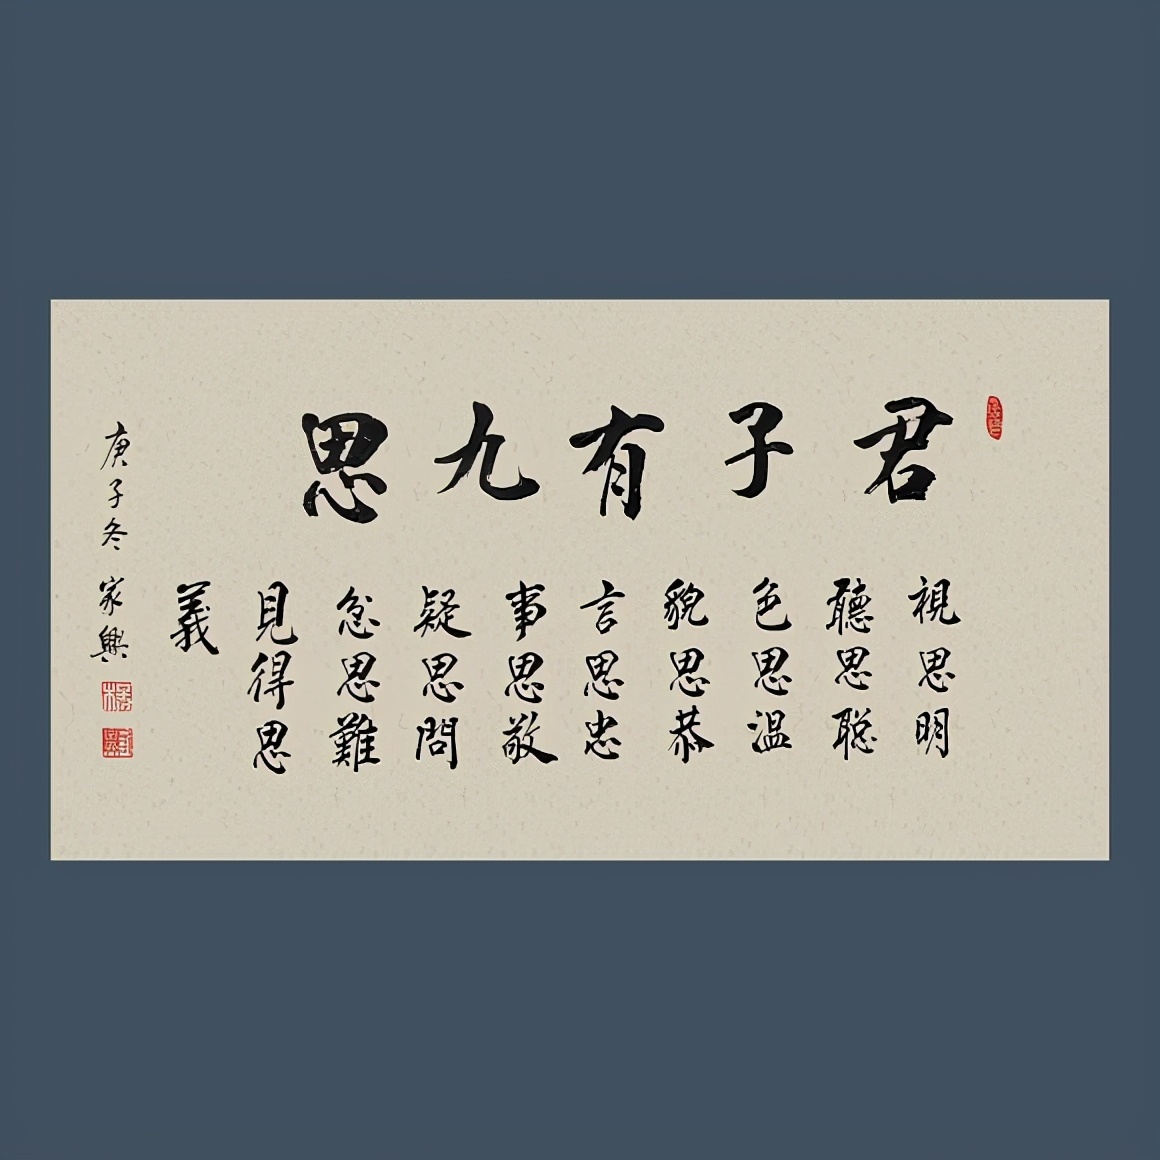 君子有九思
視思明
聽思聡
色思温
貌思恭
言思忠
事思敬
疑思問
忿思難
見得思
義
庚子冬
家興